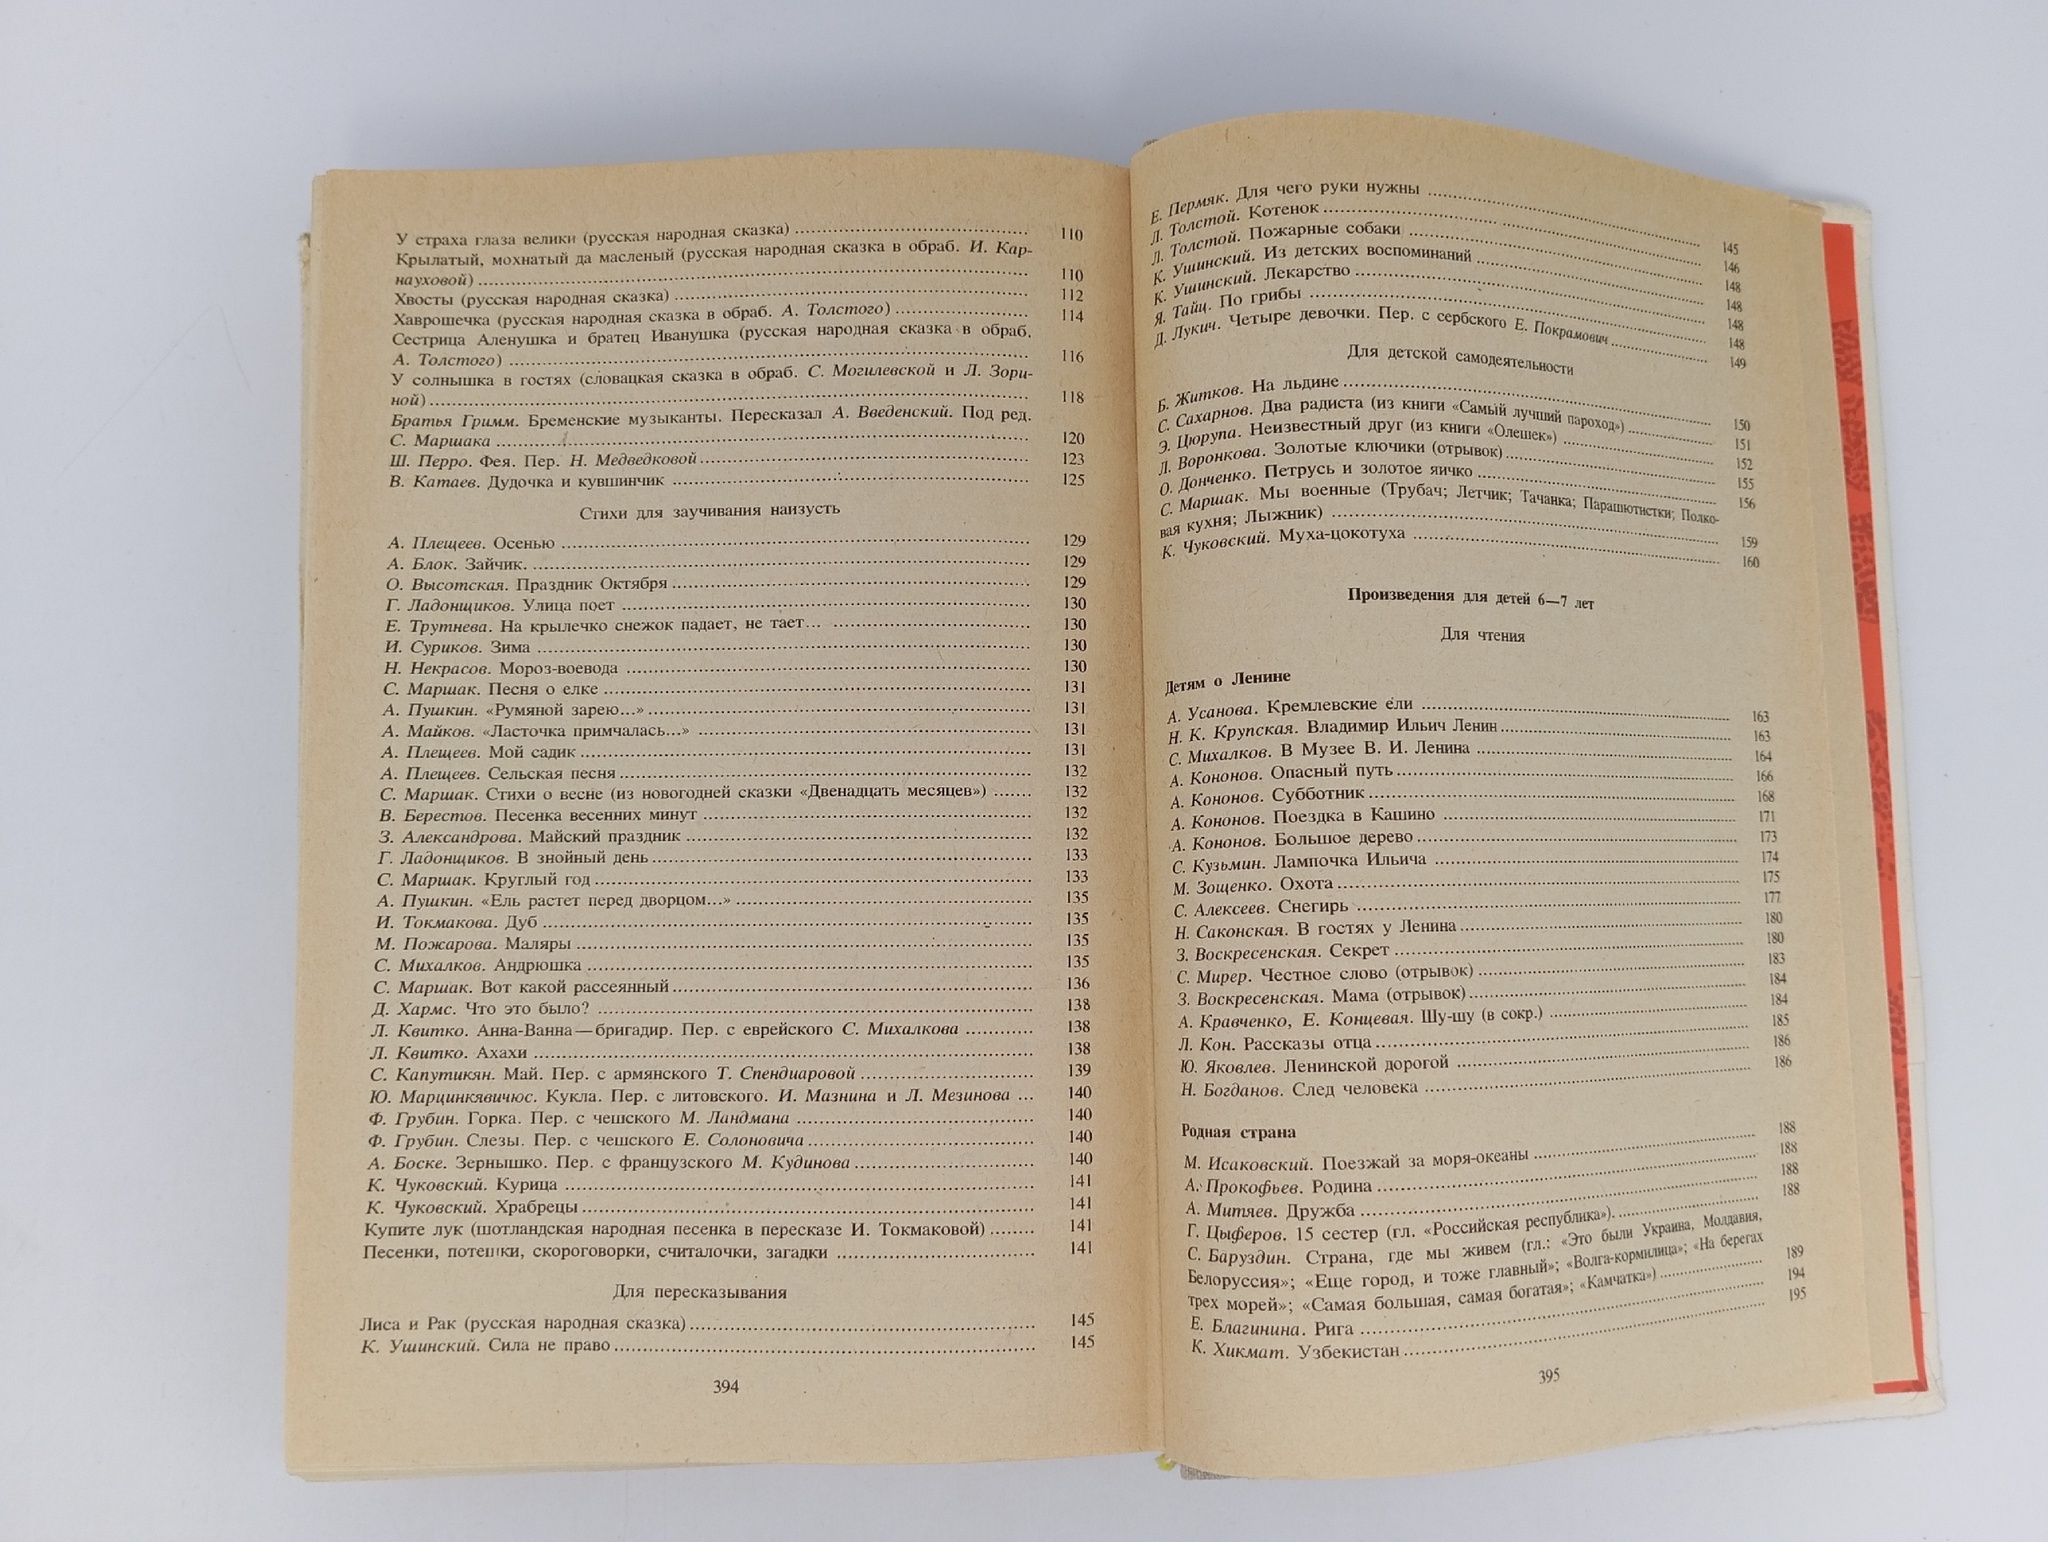 У страха глаза велики (русская народная сказка) ........ 110
Крылатый, мохнатый да масленый (русская народная сказка в обраб. И. Кар-
науховой) ........ 110
Хвосты (русская народная сказка) ........ 112
Хаврошечка (русская народная сказка в обраб. А. Толстого) ........ 114
Сестрица Аленушка и братец Иванушка (русская народная сказка в обраб.
А. Толстого) ........ 116
У солнышка в гостях (словацкая сказка в обраб. С. Могилевской и Л. Зори-
ной) ........ 118
Братья Гримм. Бременские музыканты. Пересказал А. Введенский. Под ред.
С. Маршака ........ 120
Ш. Перро. Фея. Пер. Н. Медведковой ........ 123
В. Катаев. Дудочка и кувшинчик ........ 125
Стихи для заучивания наизусть
А. Плещеев. Осенью ........ 129
А. Блок. Зайчик. ........ 129
О. Высотская. Праздник Октября ........ 129
Г. Ладонщиков. Улица поет ........ 130
Е. Трутнева. На крылечко снежок падает, не тает... ........ 130
И. Суриков. Зима ........ 130
Н. Некрасов. Мороз-воевода ........ 130
С. Маршак. Песня о елке ........ 131
А. Пушкин. «Румяной зарею...» ........ 131
А. Майков. «Ласточка примчалась...» ........ 131
А. Плещеев. Мой садик ........ 131
А. Плещеев. Сельская песня ........ 132
С. Маршак. Стихи о весне (из новогодней сказки «Двенадцать месяцев») ........ 132
В. Берестов. Песенка весенних минут ........ 132
З. Александрова. Майский праздник ........ 132
Г. Ладонщиков. В знойный день ........ 133
С. Маршак. Круглый год ........ 133
А. Пушкин. «Ель растет перед дворцом...» ........ 135
И. Токмакова. Дуб ........ 135
М. Пожарова. Маляры ........ 135
С. Михалков. Андрюшка ........ 135
С. Маршак. Вот какой рассеянный ........ 136
Д. Хармс. Что это было? ........ 138
Л. Квитко. Анна-Ванна — бригадир. Пер. с еврейского С. Михалкова ........ 138
Л. Квитко. Ахахи ........ 138
С. Капутикян. Май. Пер. с армянского Т. Спендиаровой ........ 139
Ю. Марцинкявичюс. Кукла. Пер. с литовского. И. Мазнина и Л. Мезинова ... 140
Ф. Грубин. Горка. Пер. с чешского М. Ландмана ........ 140
Ф. Грубин. Слезы. Пер. с чешского Е. Солоновича ........ 140
А. Боске. Зернышко. Пер. с французского М. Кудинова ........ 140
К. Чуковский. Курица ........ 141
К. Чуковский. Храбрецы ........ 141
Купите лук (шотландская народная песенка в пересказе И. Токмаковой) ........ 141
Песенки, потешки, скороговорки, считалочки, загадки ........ 141
Для пересказывания
Лиса и Рак (русская народная сказка) ........ 145
К. Ушинский. Сила не право ........ 145
394
Е. Пермяк. Для чего руки нужны ........ 145
Л. Толстой. Котенок ........ 146
Л. Толстой. Пожарные собаки ........ 148
К. Ушинский. Из детских воспоминаний ........ 148
К. Ушинский. Лекарство ........ 148
Я. Тайц. По грибы ........ 148
Д. Лукич. Четыре девочки. Пер. с сербского Е. Покрамович ........ 149
Для детской самодеятельности
Б. Житков. На льдине ........ 150
С. Сахарнов. Два радиста (из книги «Самый лучший пароход») ........ 151
Э. Цюрупа. Неизвестный друг (из книги «Олешек») ........ 152
Л. Воронкова. Золотые ключики (отрывок) ........ 155
О. Донченко. Петрусь и золотое яичко ........ 156
С. Маршак. Мы военные (Трубач; Летчик; Тачанка; Парашютистки; Полко-
вая кухня; Лыжник) ........ 159
К. Чуковский. Муха-цокотуха ........ 160
Произведения для детей 6—7 лет
Для чтения
Детям о Ленине
А. Усанова. Кремлевские ели ........ 163
Н. К. Крупская. Владимир Ильич Ленин ........ 163
С. Михалков. В Музее В. И. Ленина ........ 164
А. Кононов. Опасный путь ........ 166
А. Кононов. Субботник ........ 168
А. Кононов. Поездка в Кашино ........ 171
А. Кононов. Большое дерево ........ 173
С. Кузьмин. Лампочка Ильича ........ 174
М. Зощенко. Охота ........ 175
С. Алексеев. Снегирь ........ 177
Н. Саконская. В гостях у Ленина ........ 180
З. Воскресенская. Секрет ........ 180
С. Мирер. Честное слово (отрывок) ........ 183
З. Воскресенская. Мама (отрывок) ........ 184
А. Кравченко, Е. Концевая. Шу-шу (в сокр.) ........ 184
Л. Кон. Рассказы отца ........ 185
Ю. Яковлев. Ленинской дорогой ........ 186
Н. Богданов. След человека ........ 186
Родная страна
М. Исаковский. Поезжай за моря-океаны ........ 188
А. Прокофьев. Родина ........ 188
А. Митяев. Дружба ........ 188
Г. Цыферов. 15 сестер (гл. «Российская республика»). ........ 188
С. Баруздин. Страна, где мы живем (гл.: «Это были Украина, Молдавия,
Белоруссия»; «Еще город, и тоже главный»; «Волга-кормилица»; «На берегах
трех морей»; «Самая большая, самая богатая»; «Камчатка») ........ 189
Е. Благинина. Рига ........ 194
К. Хикмат. Узбекистан ........ 195
395